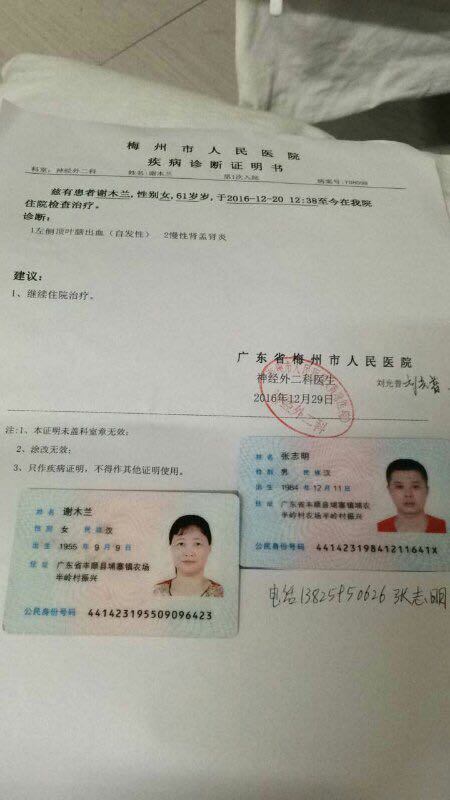 梅州市人民医院
疾病诊断证明书
科室:神经外二科 姓名:谢木兰 第1次入院 病案号:
兹有患者谢木兰,性别女,61岁岁,于2016-12-20 12:38至今在我院
住院检查治疗。
诊断:
1左侧顶叶脑出血(自发性) 2慢性肾盂肾炎
建议:
1、继续住院治疗。
广东省梅州市人民医院
神经外二科医生 刘光普
2016年12月29日
注:1、本证明未盖科室章无效;
2、涂改无效;
3、只作疾病证明,不得作其他证明使用。
姓名 张志明
性别 男 民族 汉
出生 1984年12月11日
住址 广东省丰顺县埔寨镇埔农
半岭村农场半岭村振兴
44142319841211641X
姓名 谢木兰
性别 女 民族 汉
出生 1955年9月9日
住址 广东省丰顺县埔寨镇农场
半岭村振兴
公民身份号码 441423195509096423
电话13825950626 张志明